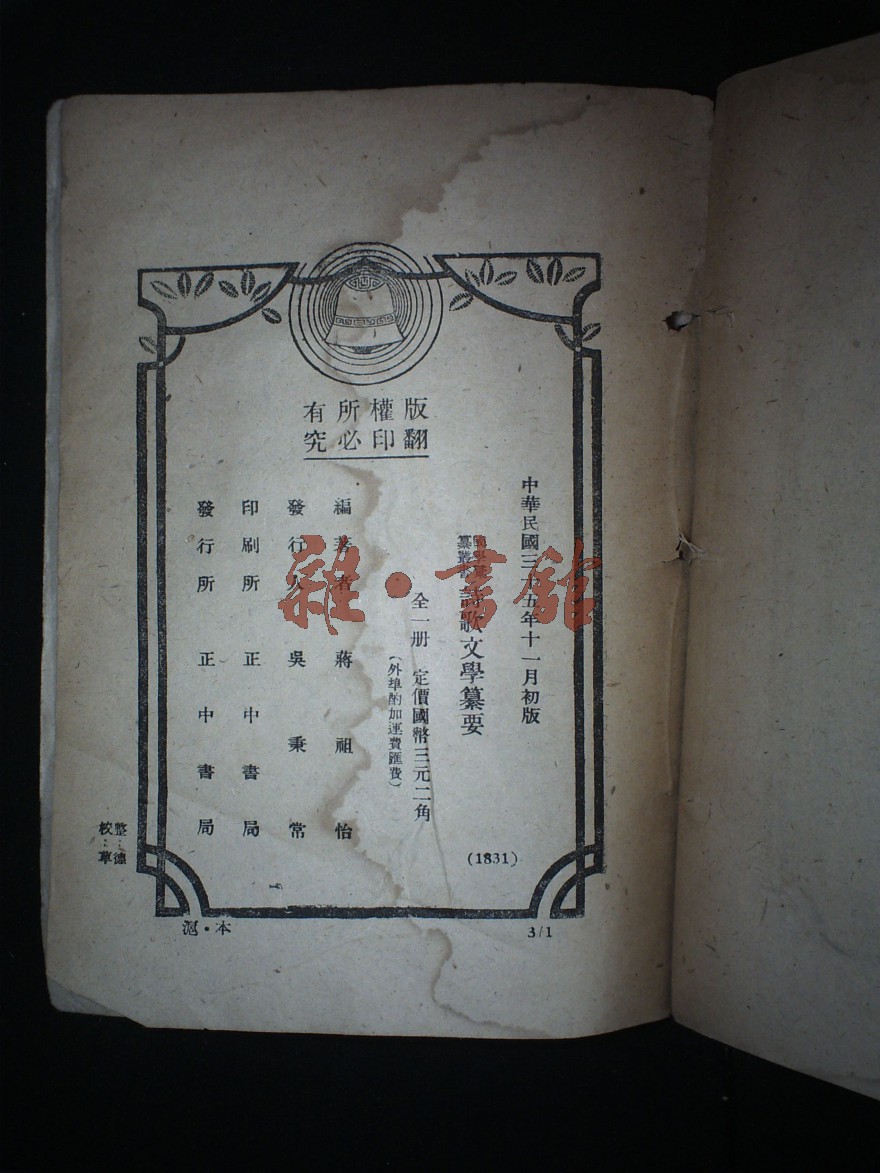 版權所有
翻印必究
中華民國三十五年十一月初版
詩歌文學纂要
全一册 定價國幣三元二角
(外埠酌加運費匯費)
編著者 蔣祖怡
發行人 吳秉常
印刷所 正中書局
發行所 正中書局
(1831)
整:德
校:草
滬·本
3/1
雜·書館